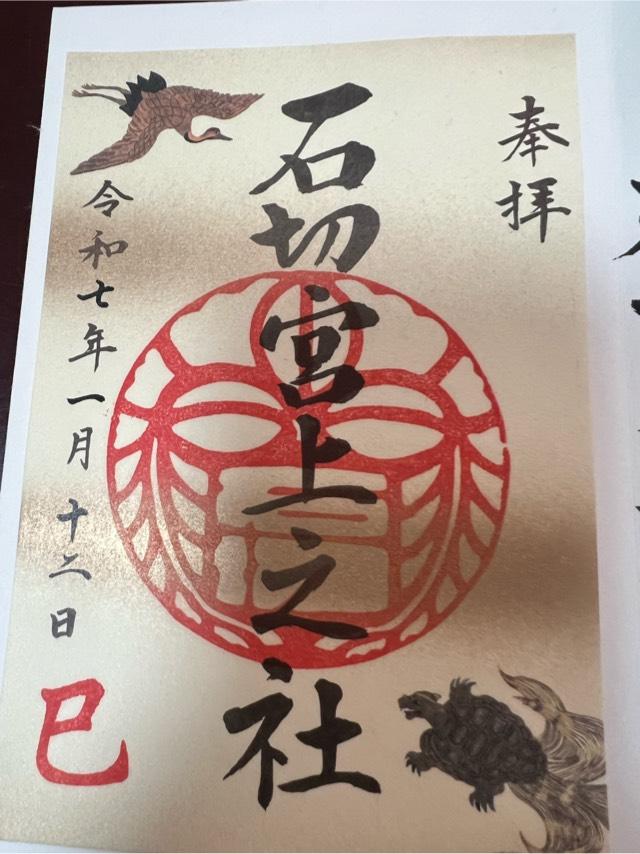 奉拝
石切宮上之社
令和七年一月十二日
巳